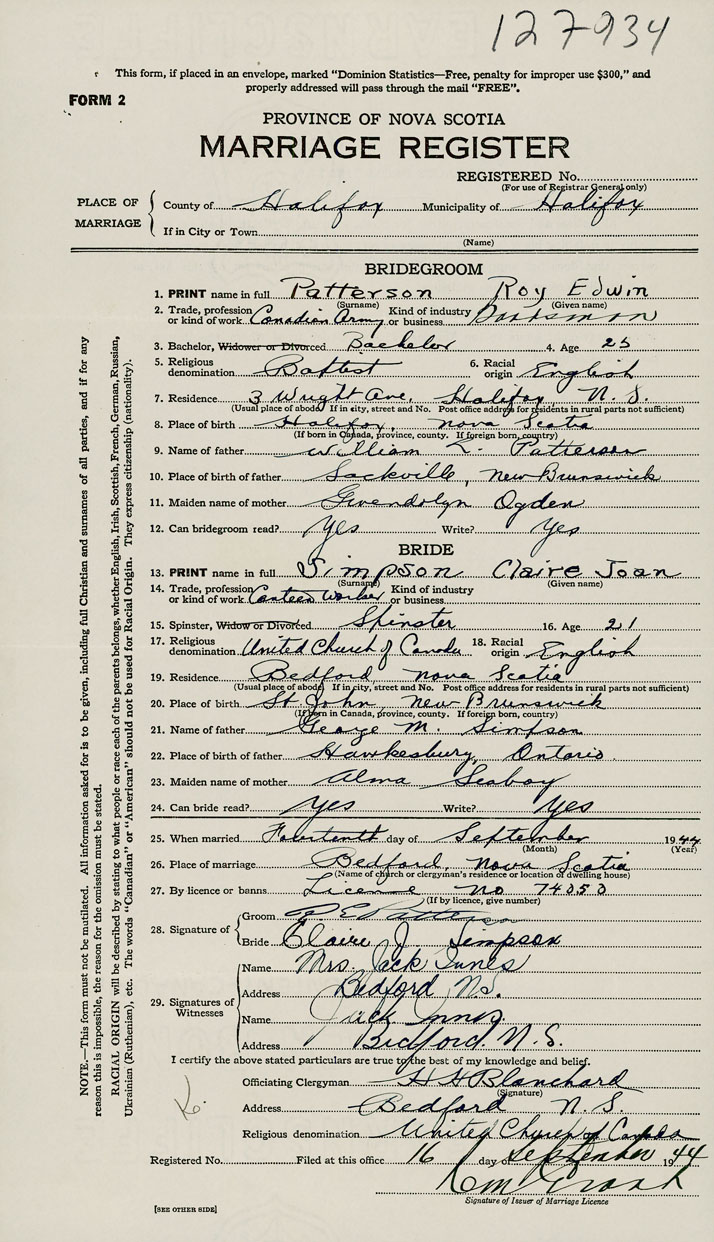 127934
This form, if placed in an envelope, marked "Dominion Statistics—Free, penalty for improper use $300," and
properly addressed will pass through the mail "FREE".
FORM 2
PROVINCE OF NOVA SCOTIA
MARRIAGE REGISTER
REGISTERED No.
(For use of Registrar General only)
PLACE OF MARRIAGE
County of Halifax Municipality of Halifax
If in City or Town
(Name)
BRIDEGROOM
1. PRINT name in full Patterson Roy Edwin
(Surname) (Given name)
2. Trade, profession or kind of work Canadian Army Kind of industry or business
3. Bachelor, Widower or Divorced Bachelor 4. Age 25
5. Religious denomination Baptist 6. Racial origin English
7. Residence 3 Wright Ave, Halifax, N.S.
(Usual place of abode If in city, street and No. Post office address for residents in rural parts not sufficient)
8. Place of birth Halifax, Nova Scotia
(If born in Canada, province, county. If foreign born, country)
9. Name of father William L. Patterson
10. Place of birth of father Sackville, New Brunswick
11. Maiden name of mother Gwendolyn Ogden
12. Can bridegroom read? Yes Write? Yes
BRIDE
13. PRINT name in full Simpson Claire Joan
(Surname) (Given name)
14. Trade, profession or kind of work Canteen Worker Kind of industry or business
15. Spinster, Widow or Divorced Spinster 16. Age 21
17. Religious denomination United Church of Canada 18. Racial origin English
19. Residence Bedford Nova Scotia
(Usual place of abode If in city, street and No. Post office address for residents in rural parts not sufficient)
20. Place of birth St. John, New Brunswick
(If born in Canada, province, county. If foreign born, country)
21. Name of father George M. Simpson
22. Place of birth of father Hawkesbury, Ontario
23. Maiden name of mother Alma Seaboy
24. Can bride read? Yes Write? Yes
25. When married day of September 1944
(Month) (Year)
26. Place of marriage Bedford, Nova Scotia
(Name of church or clergyman's residence or location of dwelling house)
27. By licence or banns License No 74050
(If by licence, give number)
28. Signature of
Groom R E Patterson
Bride Claire J. Simpson
29. Signatures of Witnesses
Name Mrs. Jack Innes
Address Bedford, N.S.
Name Jack Innes
Address Bedford. N.S.
I certify the above stated particulars are true to the best of my knowledge and belief.
Officiating Clergyman H H Blanchard
(Signature)
Address Bedford N.S.
Religious denomination United Church of Canada
Registered No. Filed at this office 16 day of September 1944
Signature of Issuer of Marriage Licence
[SEE OTHER SIDE]
NOTE.—This form must not be mutilated. All information asked for is to be given, including full Christian and surnames of all parties, and if for any
reason this is impossible, the reason for the omission must be stated.
RACIAL ORIGIN will be described by stating to what people or race each of the parents belongs, whether English, Irish, Scottish, French, German, Russian,
Ukrainian (Ruthenian), etc. The words "Canadian" or "American" should not be used for Racial Origin. They express citizenship (nationality).